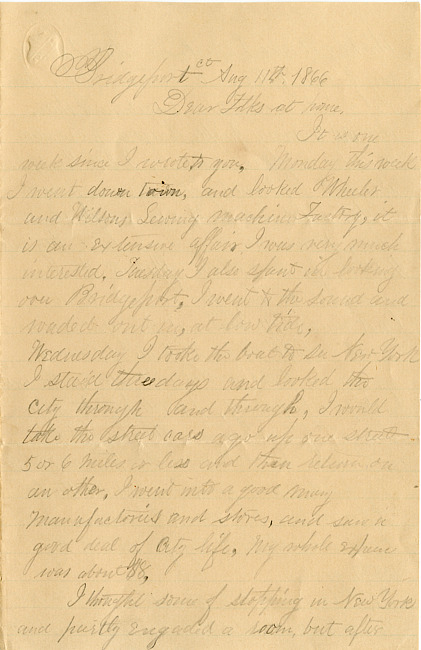 Bridgeport ct Aug 11th 1866
Dear Folks at home,
It is one
week since I wrote to you. Monday this week
I went down town, and looked Wheeler
and Wilsons Sewing machine Factory, it
is an extensive affair, I was very much
interested. Tuesday I also spent in looking
over Bridgeport, I went to the sound and
waded out in, at low tide,
Wednesday I tooke the boat to New York
I staid days and looked the
City through and through, I would
take the street cars & go up one street
5 or 6 miles or less and then return on
an other, I went into a good many
Manufactories and stores, and saw a
good deal of City life, My whole expens
was about $8,
I thought some of stopping in New York
and partly engaged a room, but after